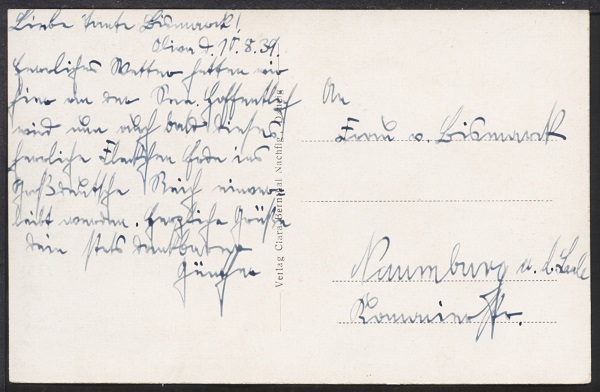 Liebe Tante Bismarck!
Oliva d. 15.8.39.
Herrliches Wetter hatten wir
hier an der See. Hoffentlich
wird nun auch bald dieses
herrliche Fleckchen Erde ins
Großdeutsche Reich einver-
leibt werden. Herzliche Grüße
Dein stets dankbarer
Günther
Verlag Clara Bernthal Nachflg., Danzig
An
Frau v. Bismarck
Naumburg a. d. Saale